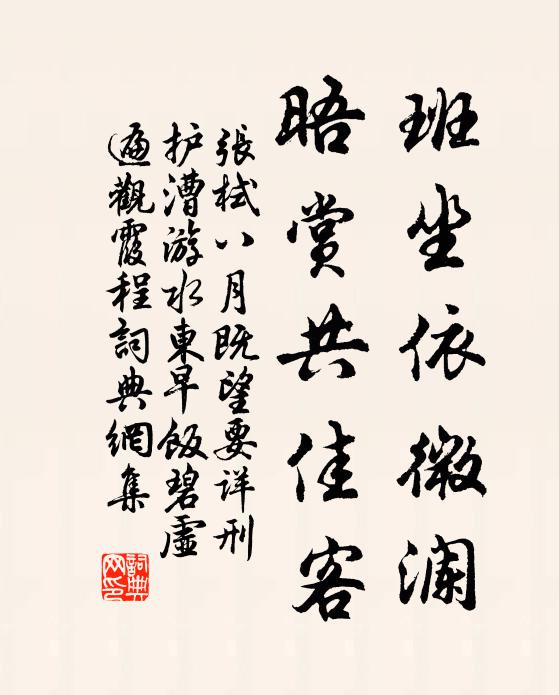 班坐依微澜
晤赏共佳客
張栻八月既望要详刑
护漕游水東早飯碧虛
遍觀霞程詞典網集
詞典
网印